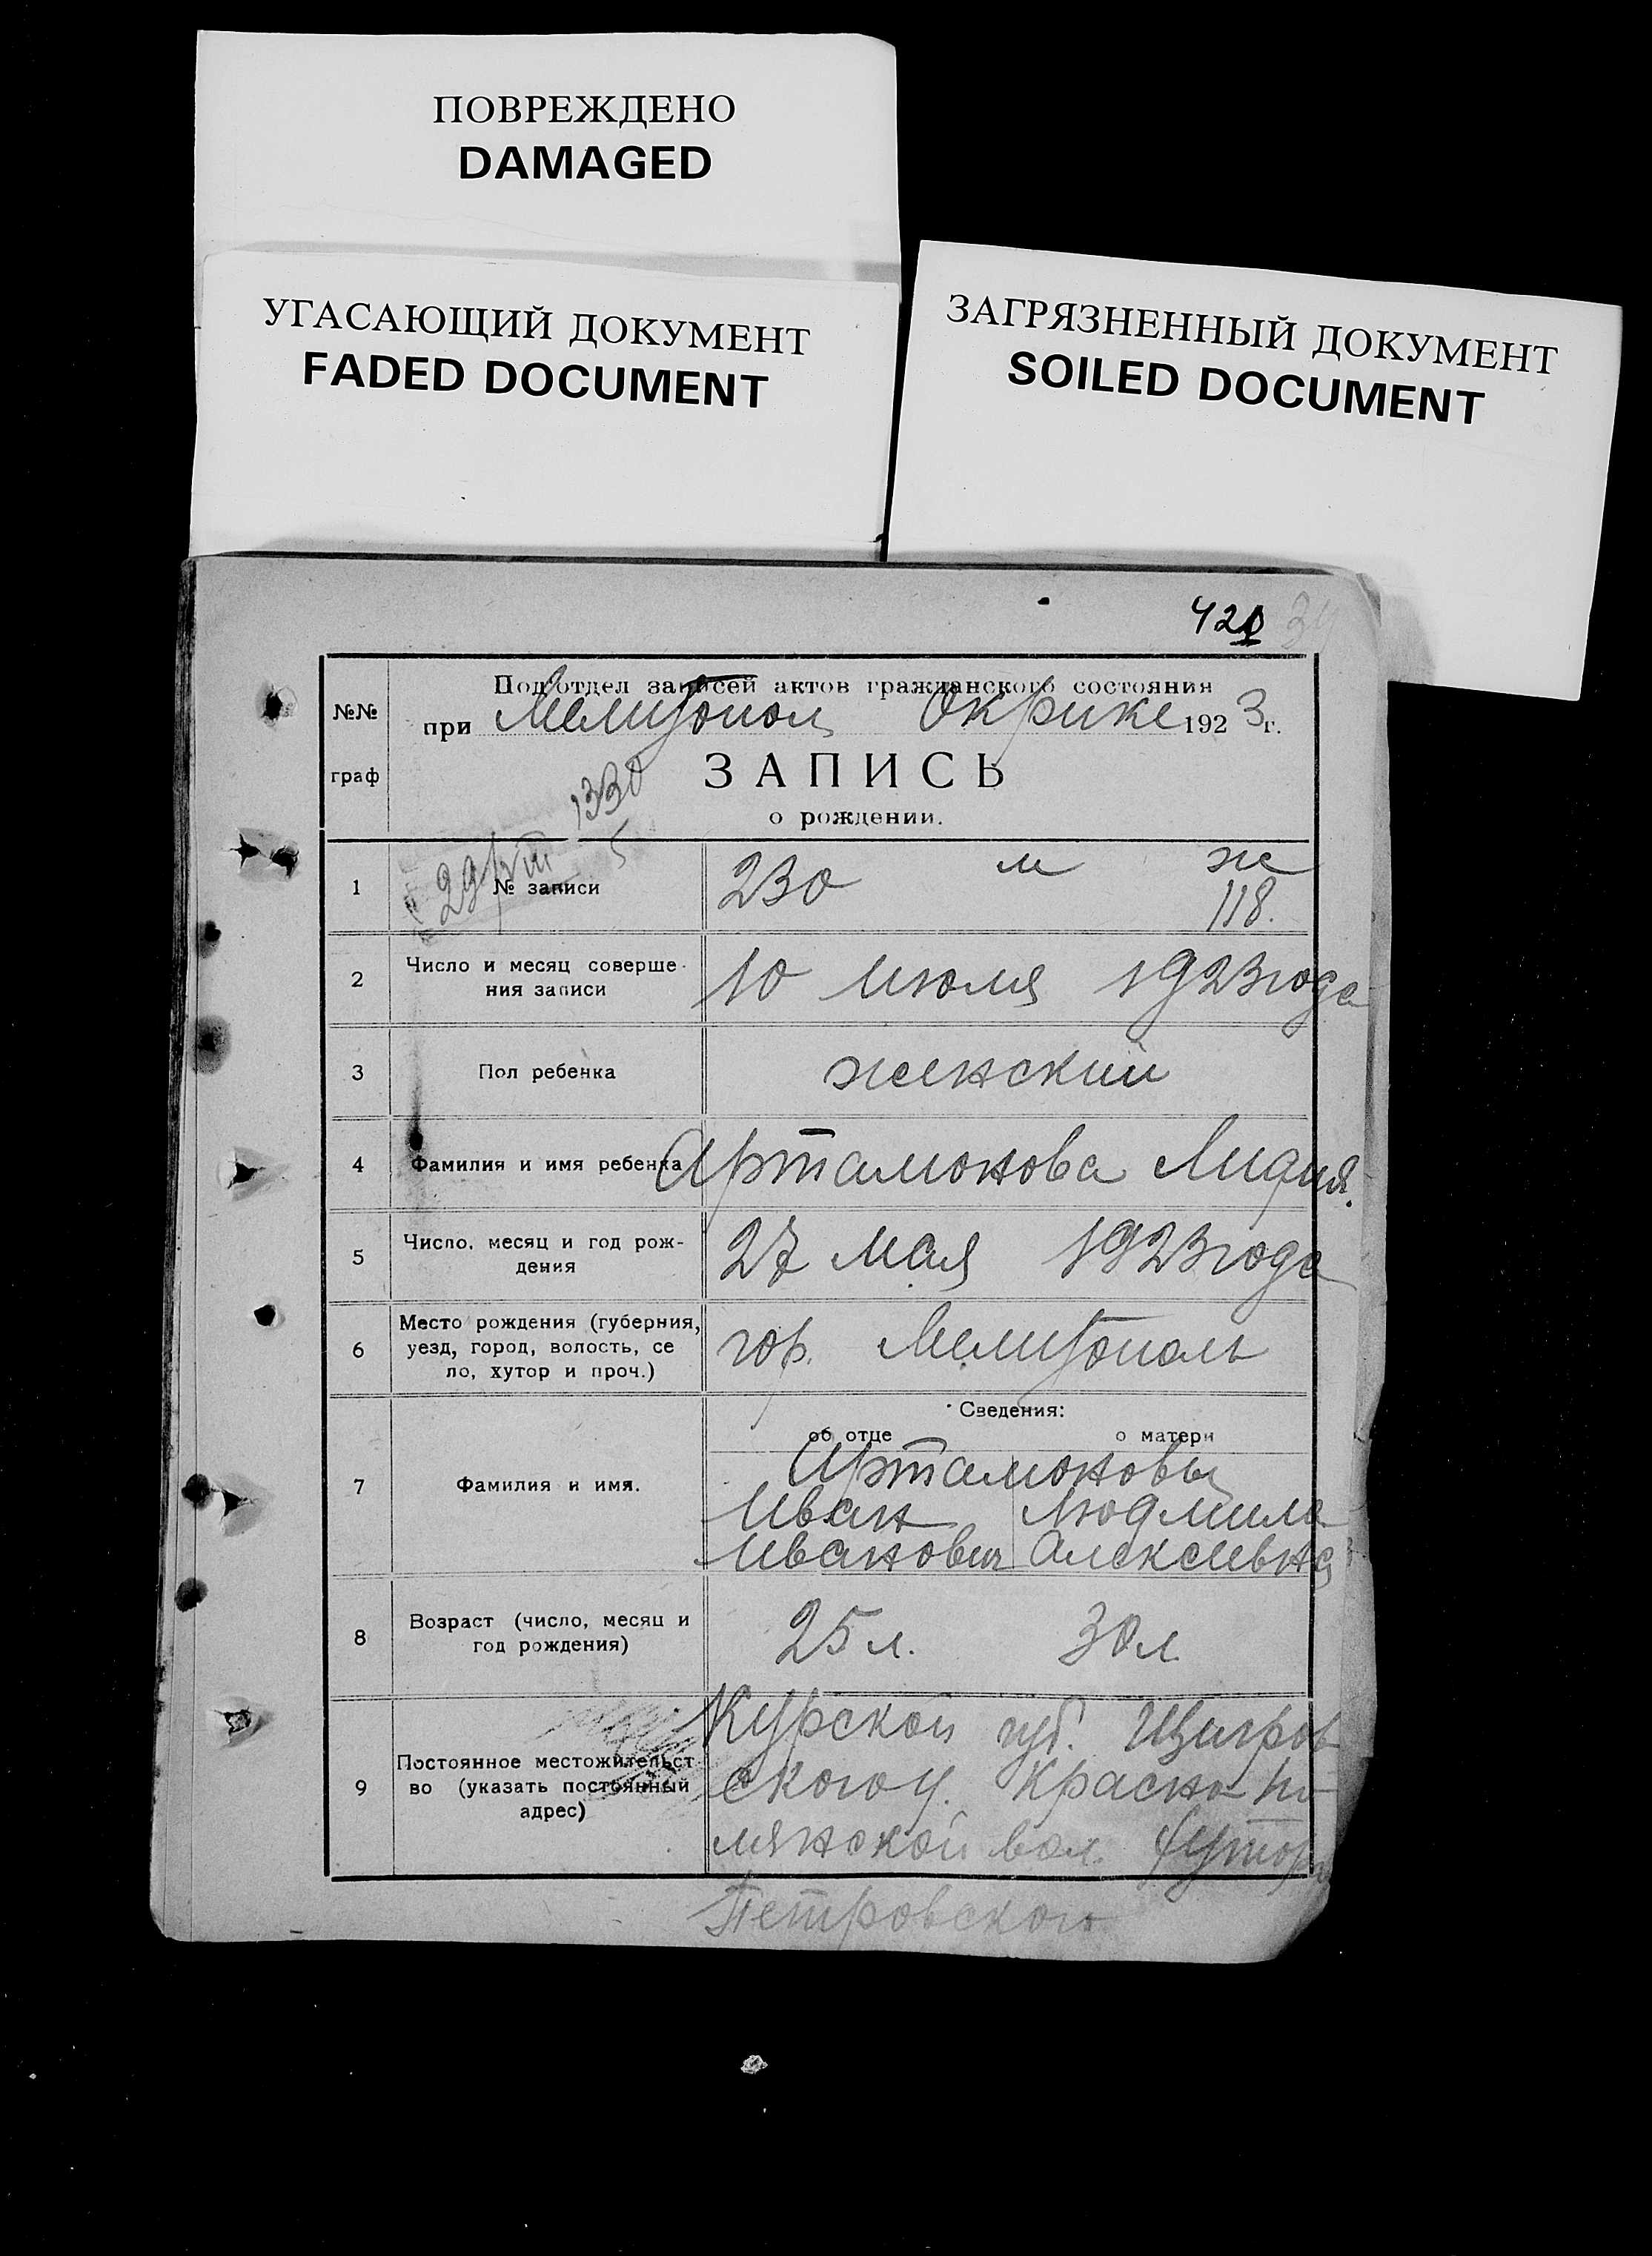 ПОВРЕЖДЕНО
DAMAGED
УГАСАЮЩИЙ ДОКУМЕНТ
FADED DOCUMENT
ЗАГРЯЗНЕННЫЙ ДОКУМЕНТ
SOILED DOCUMENT
Под'отдел записей актов гражданского состояния
№№ при Мелитопол Окрике 1923г.
граф ЗАПИСЬ
1330
о рождении.
м ж
1 № записи 230
118.
2 Число и месяц соверше- 10 июля 1923 года
ния записи
3 Пол ребенка женский
4 Фамилия и имя ребенка Артамонова Лидия.
5 Число, месяц и год рож- 27 мая 1923 года
дения
Место рождения (губерния,
6 уезд, город, волость, се гор. Мелитополь
ло, хутор и проч.)
Сведения:
об отце о матери
Артамоновы
7 Фамилия и имя. Иван Людмила
Иванович Алексеевна
8 Возраст (число, месяц и 25 л. 30 л
год рождения)
Курской губ. Щигров
Постоянное местожительст-
9 во (указать постоянный ского у. Красно по
адрес)
лянской вол. хутора
Петровского